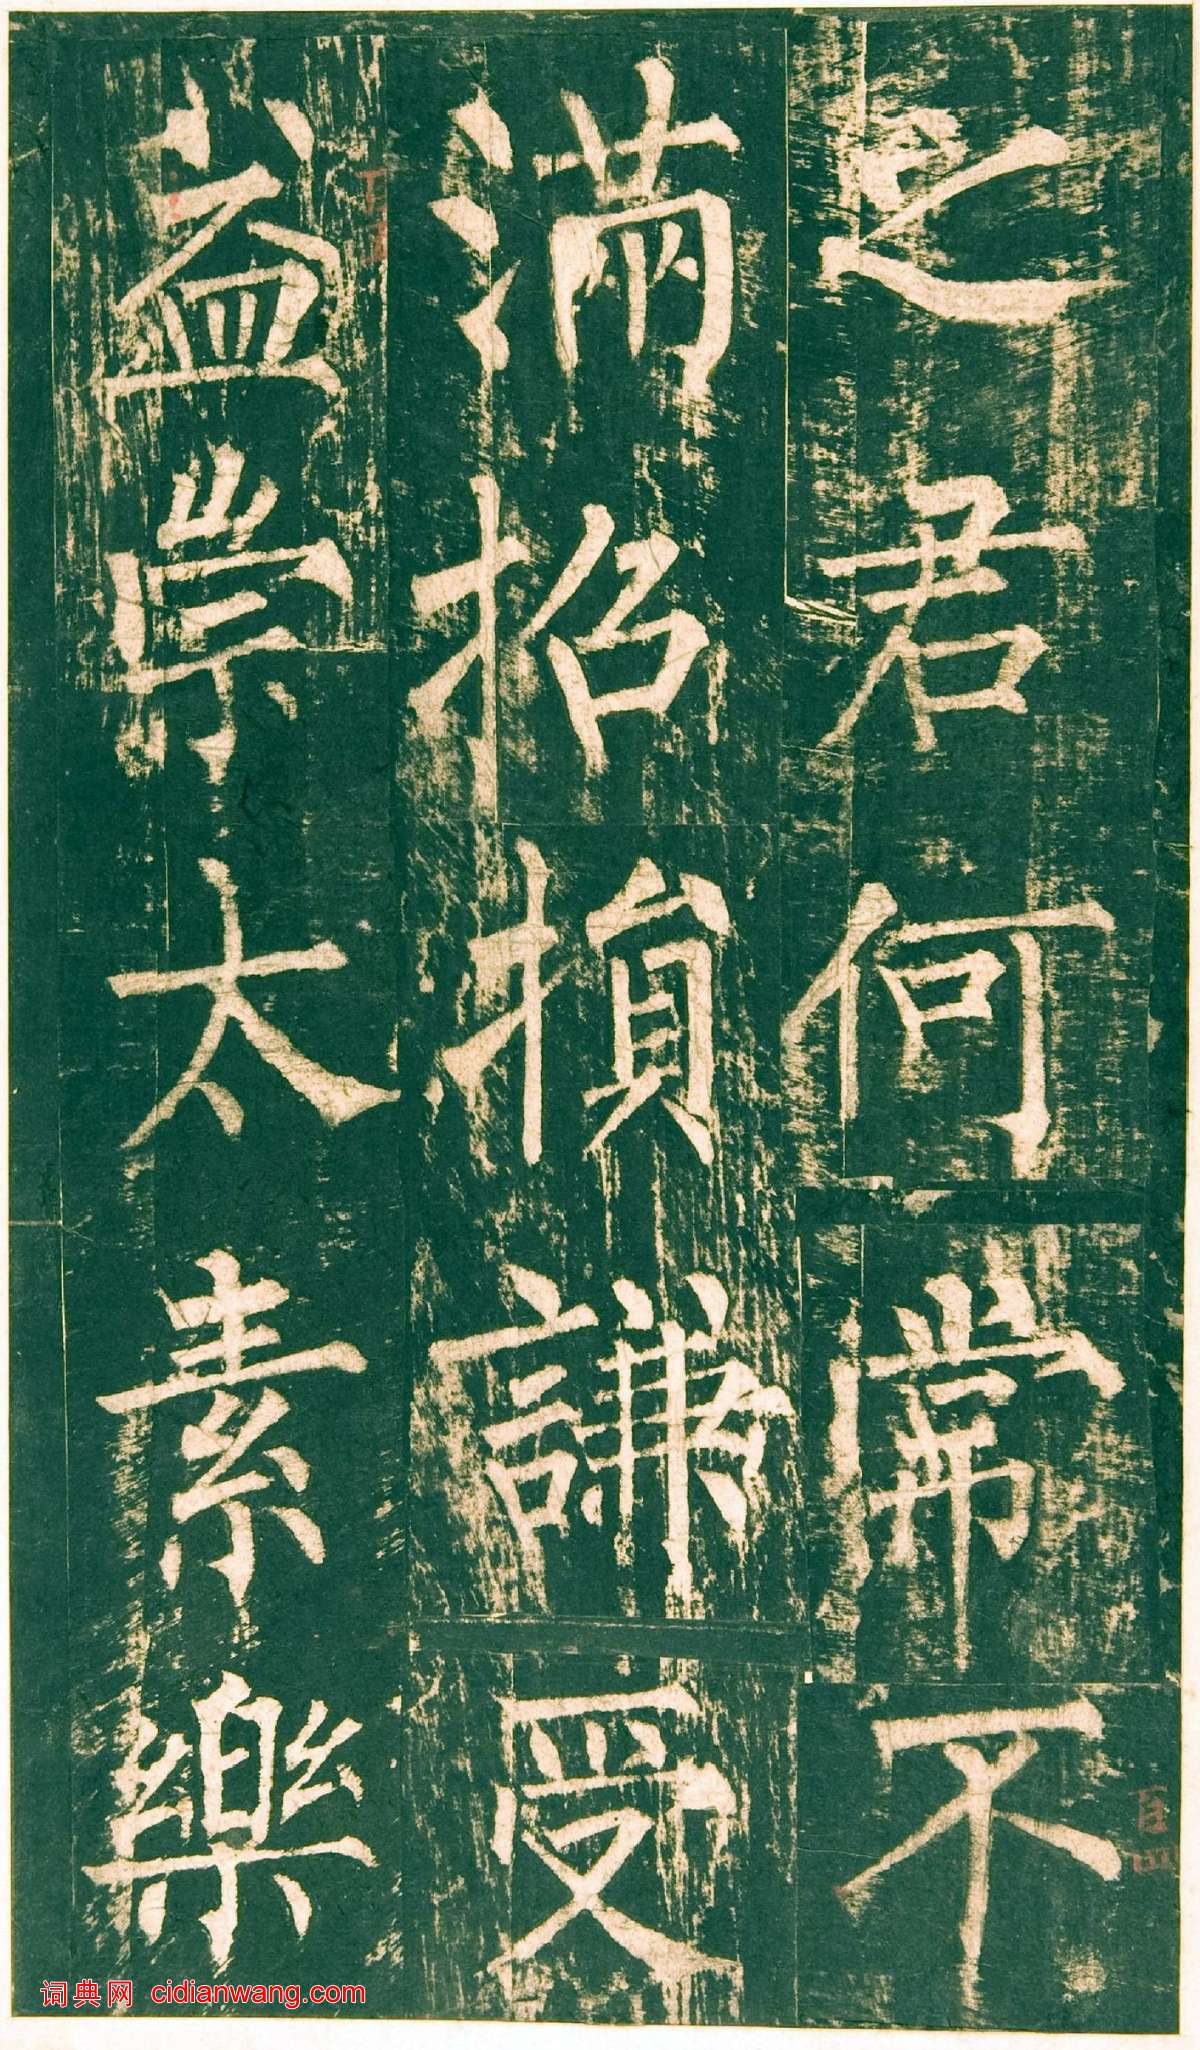 之君何常不
滿招損謙受
益崇太素樂
词典网 cidianwang.com